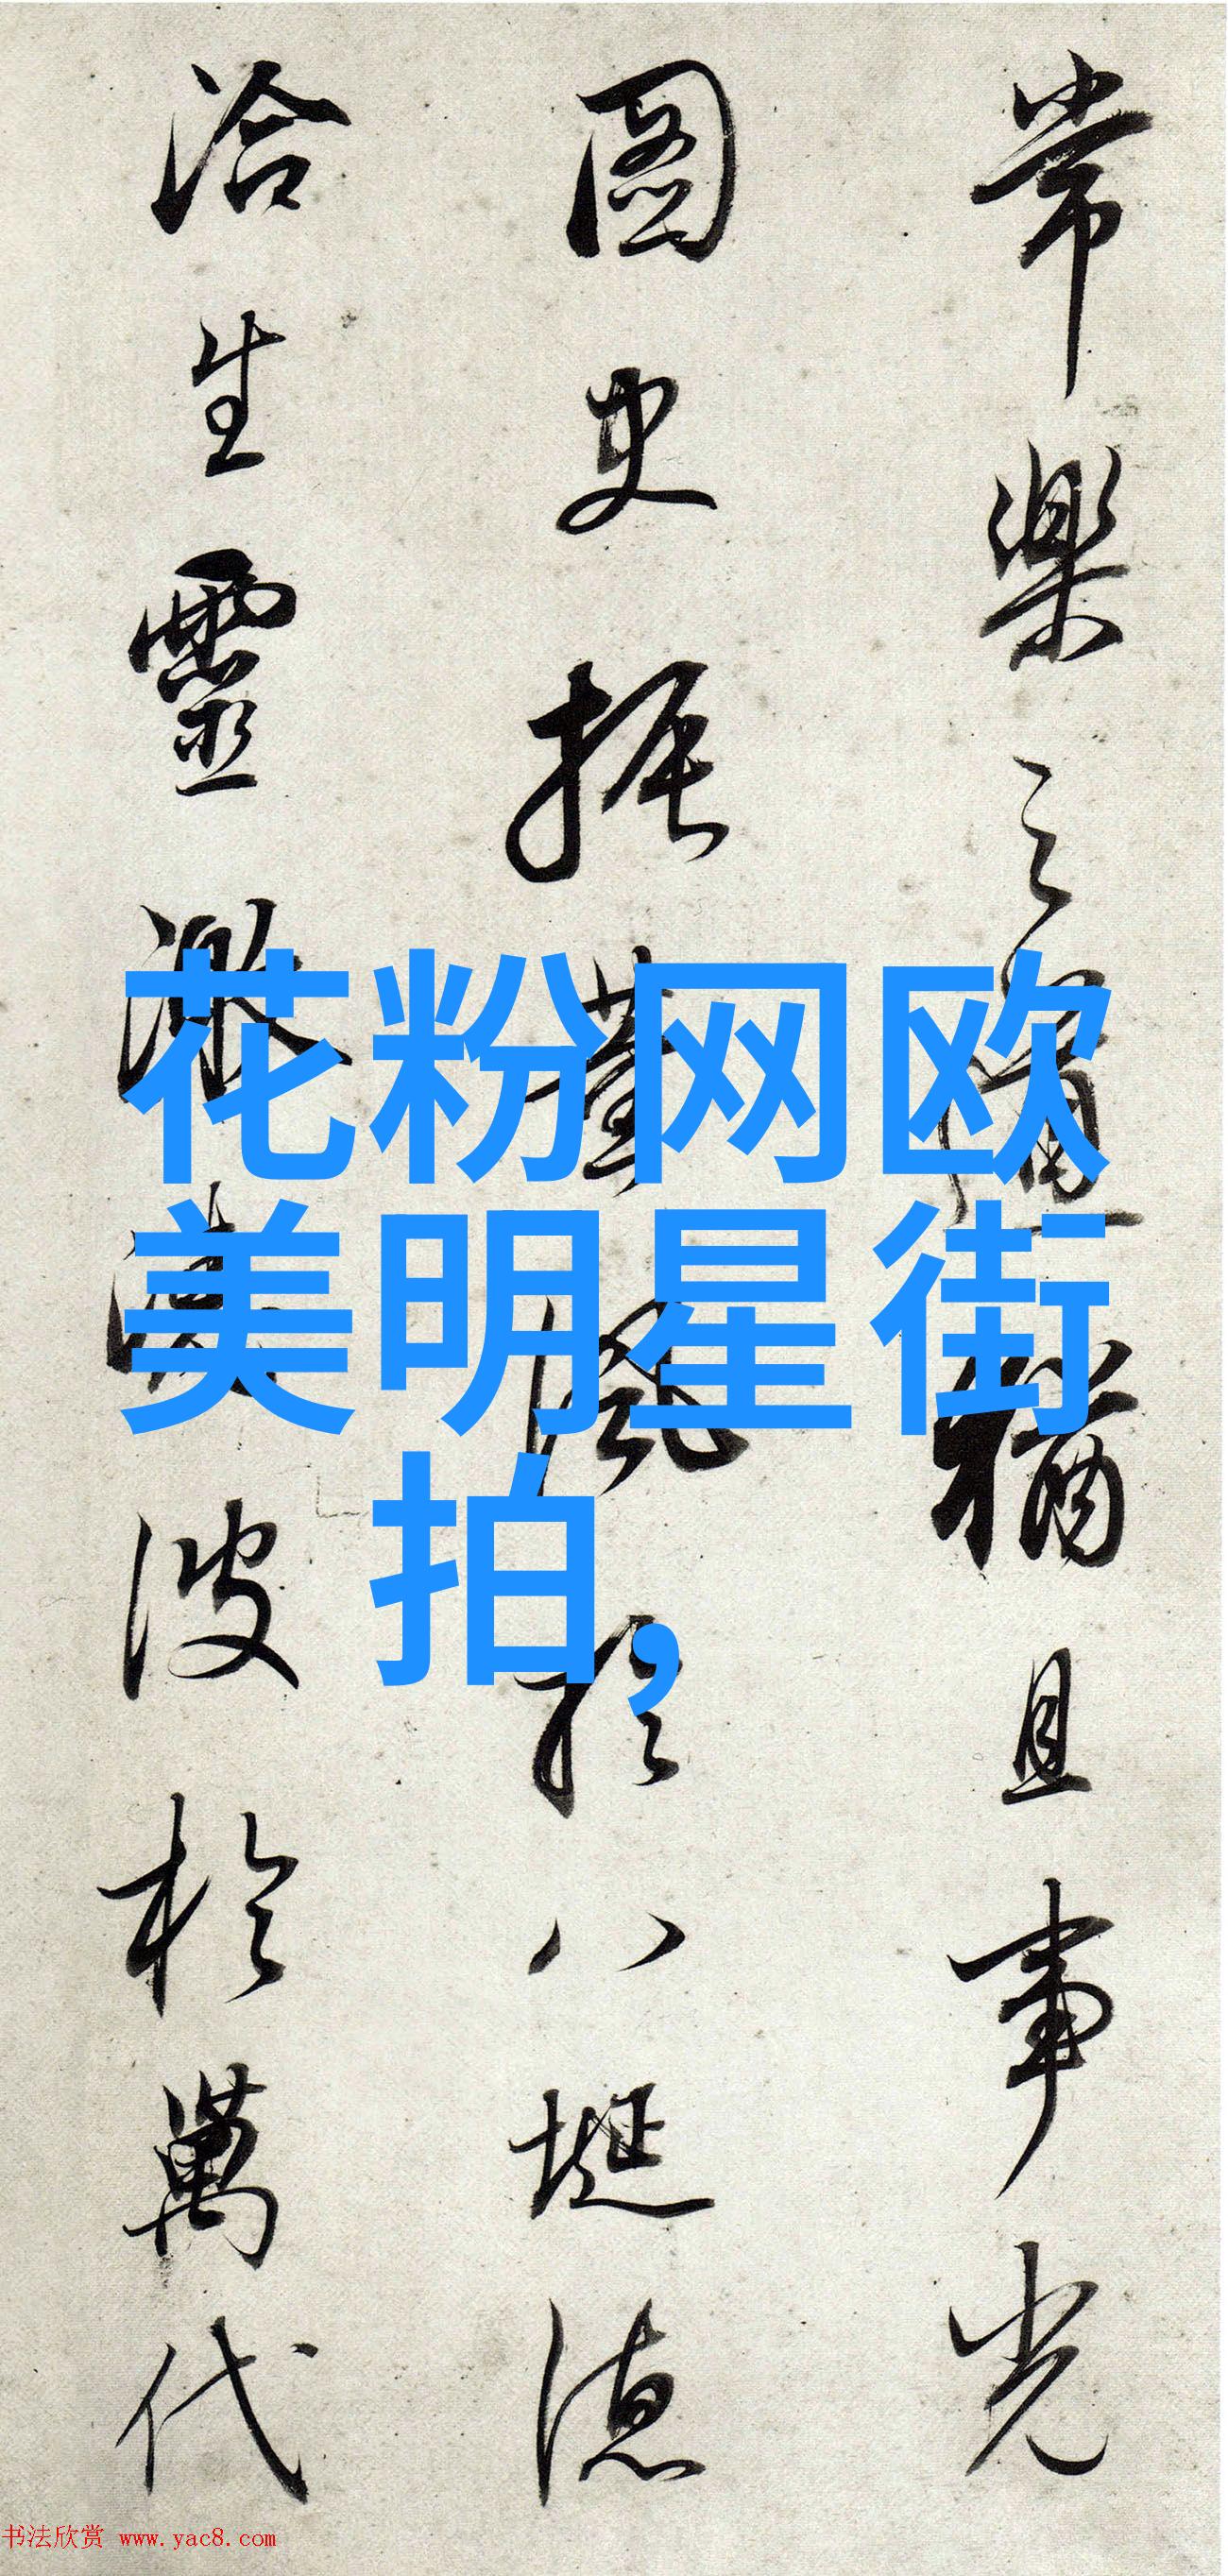 常樂之猶且事光
圖史振薰風於八埏德
洽生靈激波於萬代
花粉网欧
美明星街
拍,
书法欣赏 www.yac8.com